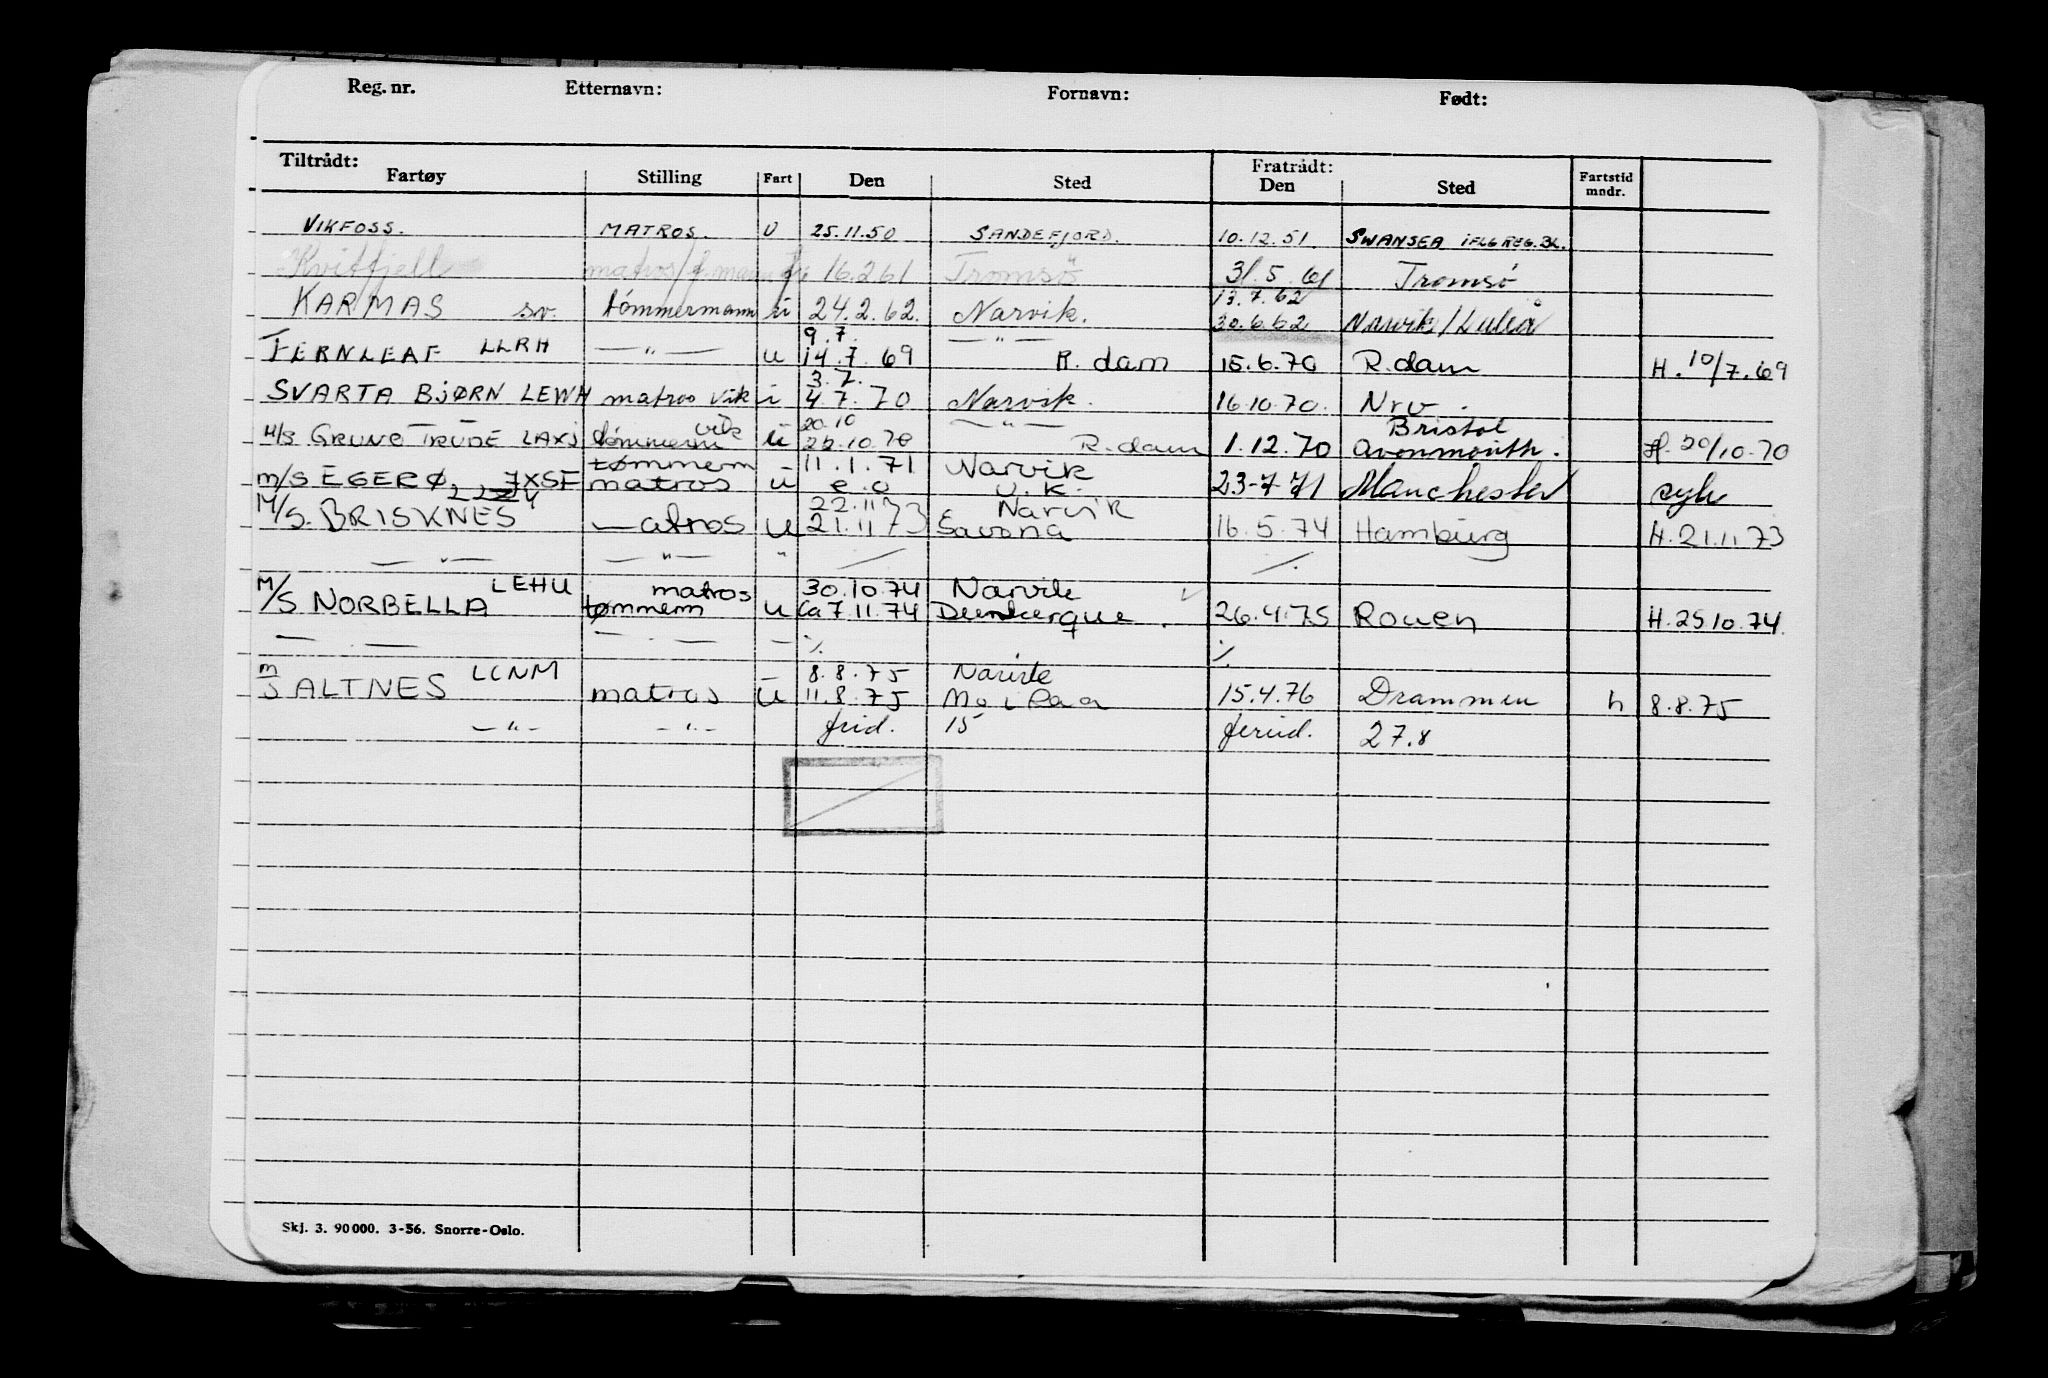 Reg. nr. Etternavn: Fornavn: Født:
Tiltrådt: Fratrådt:
Fartøy Stilling Fart Den Sted Den Sted Fartstid mndr.
VIKFOSS. MATROS. U 25.11.50 SANDEFJORD. 10.12.51. SWANSEA IFLG REG. BL.
Kvitfjell matros/ 16.2 61 Tromsö 31.5.61 Tromsö
13.7.62
KARMAS sv. tömmermann u 24.2.62. Narvik. 30.6.62 Narvik/Luleå
9.7. — " —
FERNLEAF LLRH — " — u 14.7.69 R.dam 15.6.70 R.dam H. 10/7.69
3.7.
SVARTA BJØRN LEWH matros vik i 4.7.70 Narvik. 16.10.70. Nrv.
vik 20.10 — " — Bristol
M/S GRUNO TRUDE LAXJ tömmerm u 22.10.70 R.dam 1.12.70 avonmouth. H. 20/10.70
tømmerm 11.1.71 Narvik
M/S EGERØ JXSF matros u e.o U.K. 23-7-71 Manchester syk
22.11 Narvik
M/S. BRISKNES matros u 21.11 73 Savona 16.5.74 Hamburg H. 21.11 73
— " — — " — " ./.
LEHU matros 30.10.74 Narvik
M/S NORBELLA tømmerm u Ca 7.11.74 Dunkerque. 26.4.75 Rouen H. 25 10.74.
— — — — — ./. ./.
LCNM 8.8.75 Narvik
m/s ALTNES matros u 11.8.75 15.4.76 Drammen h 8.8.75
— " — — " — 15 27.8
Skj. 3. 90 000. 3-56. Snorre-Oslo.